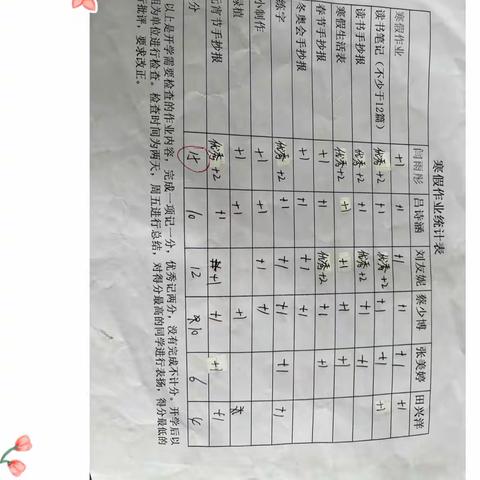 寒假作业统计表
闫雨彤 吕诗涵 刘友妮 蔡少博 张美婷 田兴洋
寒假作业 +1 +1 +1 +1 +1 +1
读书笔记（不少于12篇） 优秀+2 +1 优秀+2 +1 +1 +1
读书手抄报 优秀+2 +1 优秀+2 +1 +1
寒假生活表 优秀+2 +1 +1 +1 +1
春节手抄报 +1 +1 优秀+2 +1 +1
冬奥会手抄报 +1 +1 +1 +1
练字 优秀+2 +1 +1 +1 +1 +1
小制作 +1 +1 +1 +1
绿植 +1 +1 +1
宵节手抄报 优秀+2 +1 +1 +1 +1 +1
分 14 10 12 10 6
以上是开学需要检查的作业内容，完成一项记一分，优秀记两分，没有完成不计分。开学后以
为单位进行检查。检查时间为两天，周五进行总结，对得分最高的同学进行表扬，得分最低的
批评，要求改正。